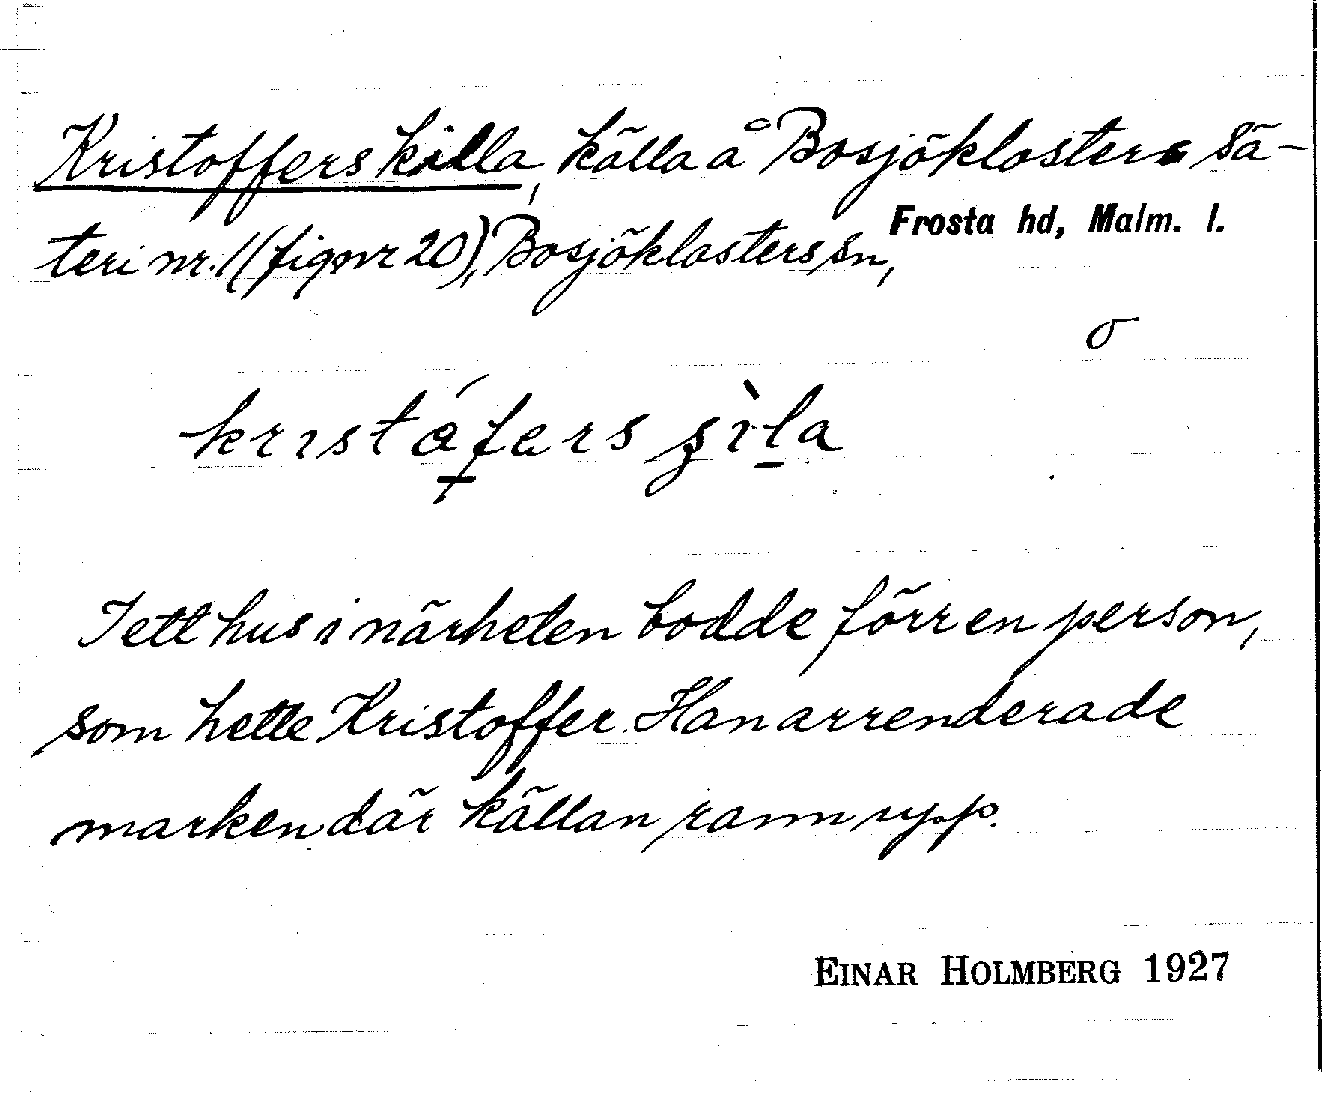 Kristoffers källa, källa å Bosjöklosters sä-
teri nr. 1 (figur 20), Bosjöklosters sn, Frosta hd, Malm. l.
σ
Iett hus i närheten bodde förr en person,
som hette Kristoffer. Han arrenderade
marken där källan rann upp.
EINAR HOLMBERG 1927